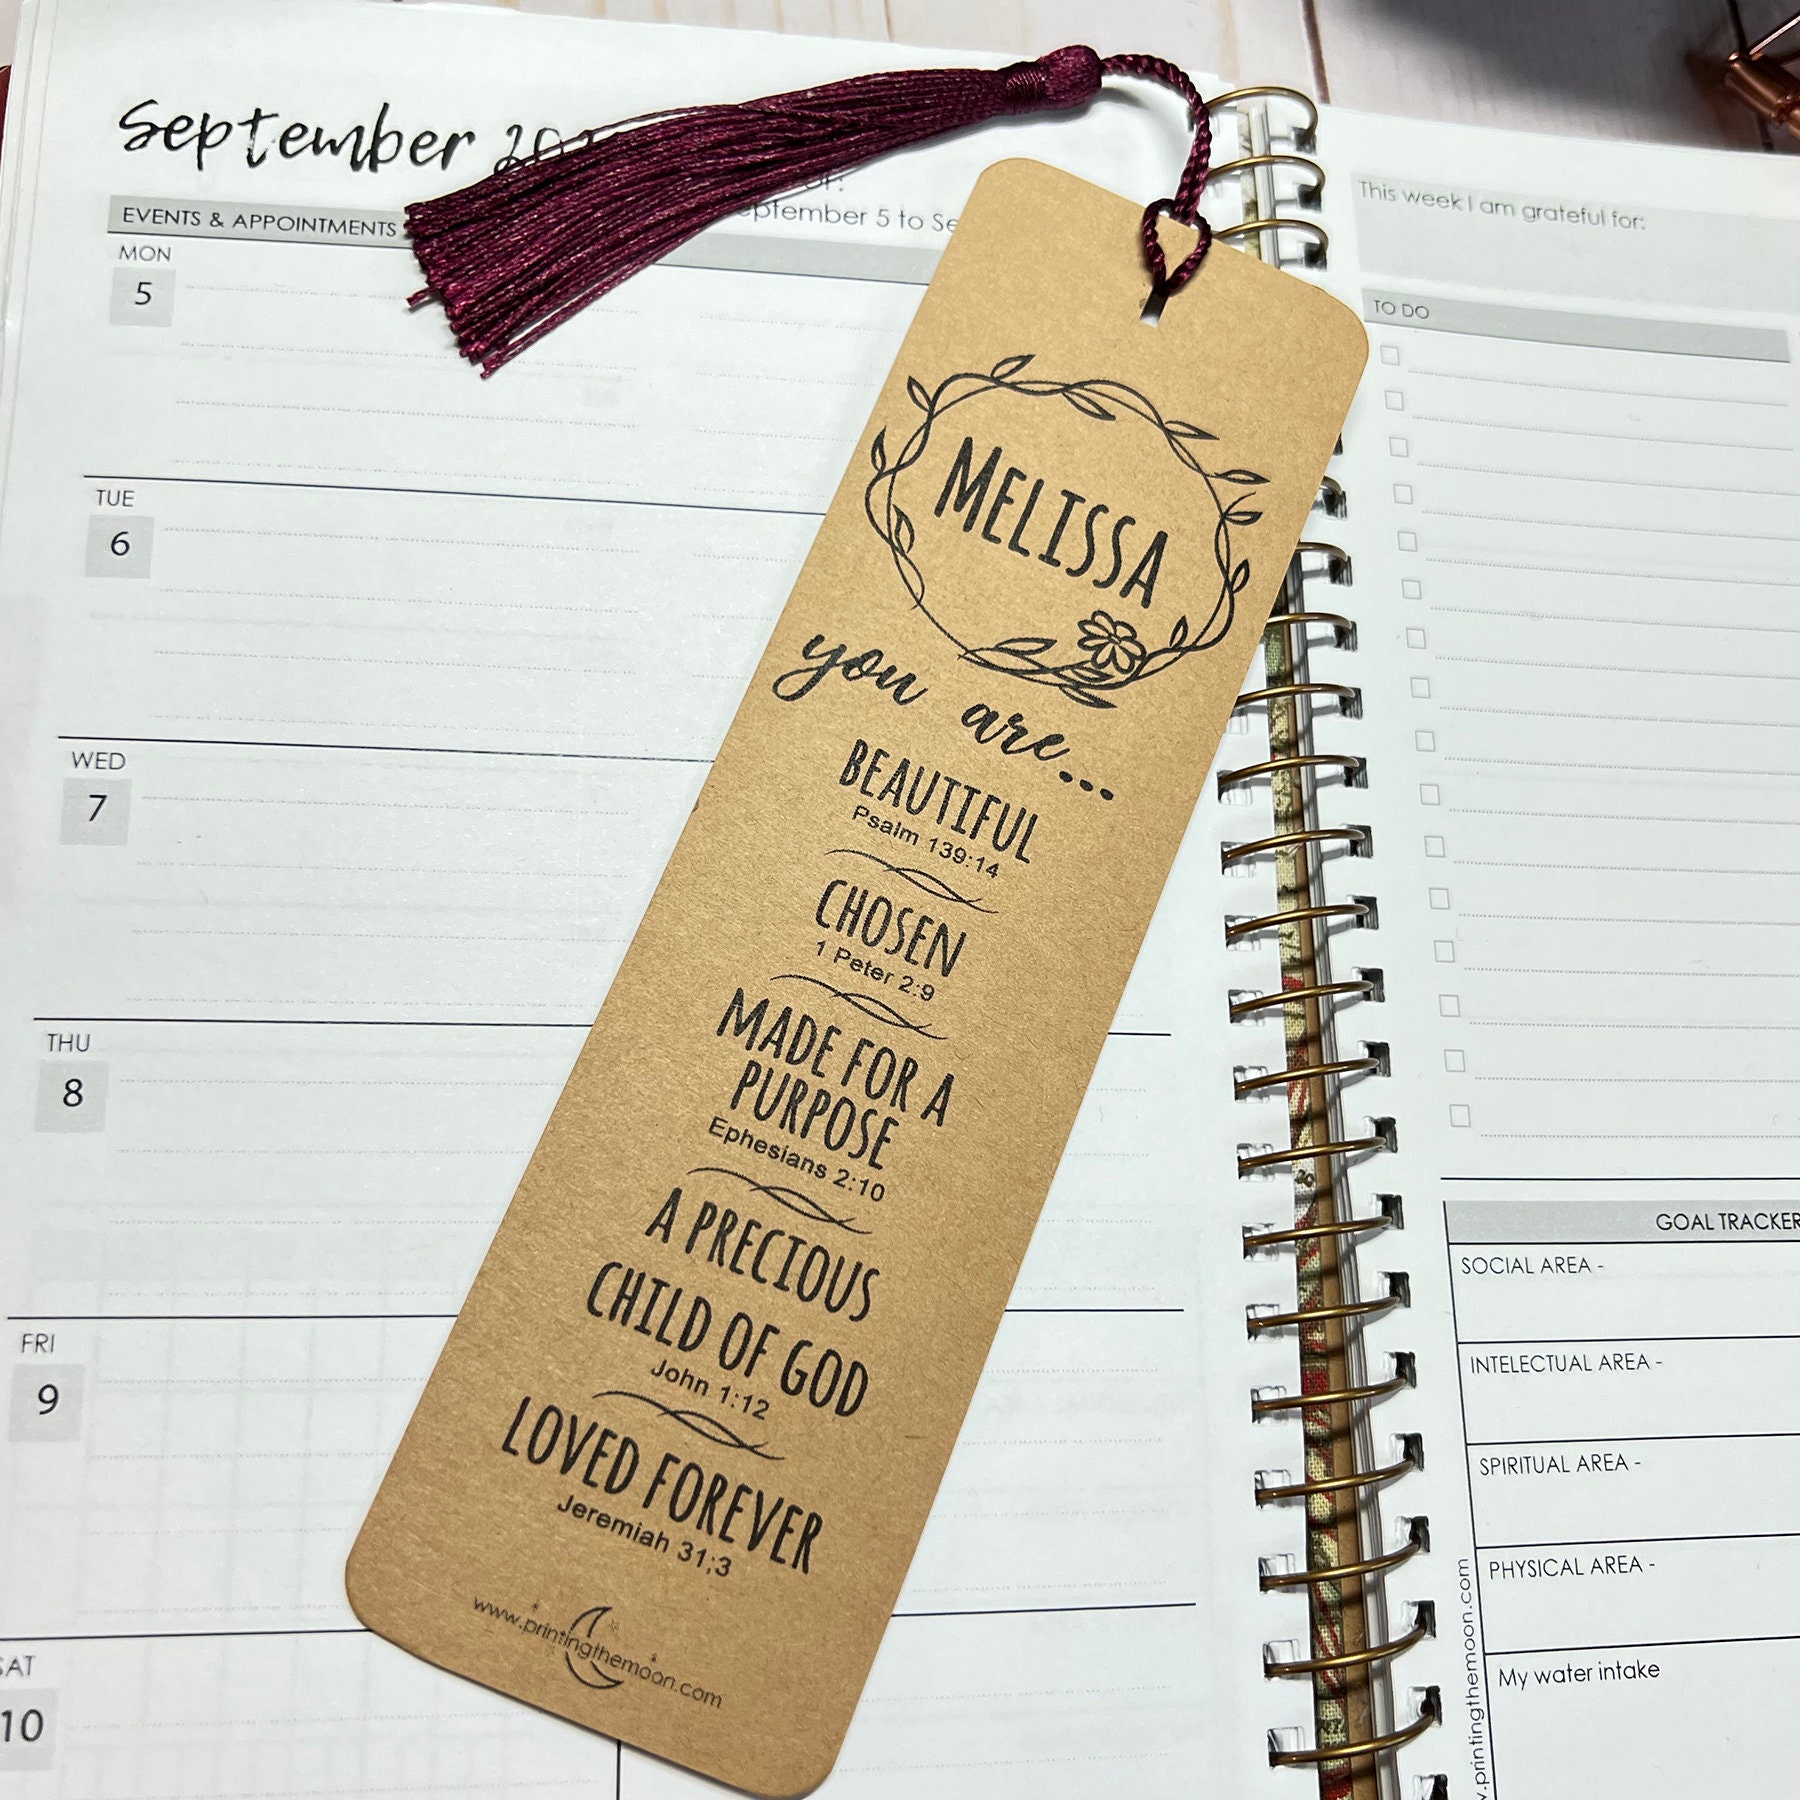 September
EVENTS & APPOINTMENTS
September 5 to
MON
5
TUE
6
WED
7
THU
8
FRI
9
SAT
10
MELISSA
you are...
BEAUTIFUL
Psalm 139:14
CHOSEN
1 Peter 2:9
MADE FOR A
PURPOSE
Ephesians 2:10
A PRECIOUS
CHILD OF GOD
John 1:12
LOVED FOREVER
Jeremiah 31;3
www.printingthemoon.com
This week I am grateful for:
TO DO
GOAL TRACKER
SOCIAL AREA -
INTELECTUAL AREA -
SPIRITUAL AREA -
PHYSICAL AREA -
My water intake
www.printingthemoon.com